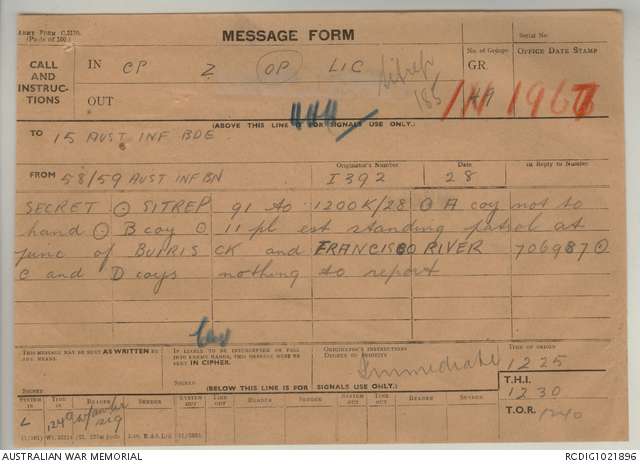 ARMY FORM C.2136.
(Pads of 100.)
MESSAGE FORM
Serial No.
CALL AND INSTRUC-TIONS
IN CP Z OP LIC Sitrep
No. of Groups
GR.
OFFICE DATE STAMP
OUT 185
(ABOVE THIS LINE IS FOR SIGNALS USE ONLY.)
TO 15 AUST INF BDE
FROM 58/59 AUST INF BN
Originator's Number
I392
Date
28
In Reply to Number
SECRET ⊙ SITREP 91 to 1200K/28 ⊙ A coy not to
hand ⊙ B coy ⊙ 11 pl est standing patrol at
junc of BURRIS CK and FRANCISCO RIVER 706987 ⊙
C and D coys nothing to report
THIS MESSAGE MAY BE SENT AS WRITTEN BY ANY MEANS.
SIGNED
IF LIABLE TO BE INTERCEPTED OR FALL INTO ENEMY HANDS, THIS MESSAGE MUST BE SENT IN CIPHER.
SIGNED
ORIGINATOR'S INSTRUCTIONS
DEGREE OF PRIORITY
Immediate
TIME OF ORIGIN
1225
T.H.I.
1230
T.O.R.
1240
(BELOW THIS LINE IS FOR SIGNALS USE ONLY.)
SYSTEM IN TIME IN READER SENDER SYSTEM OUT TIME OUT READER SENDER SYSTEM OUT TIME OUT READER SENDER
L
AUSTRALIAN WAR MEMORIAL
RCDIG1021896